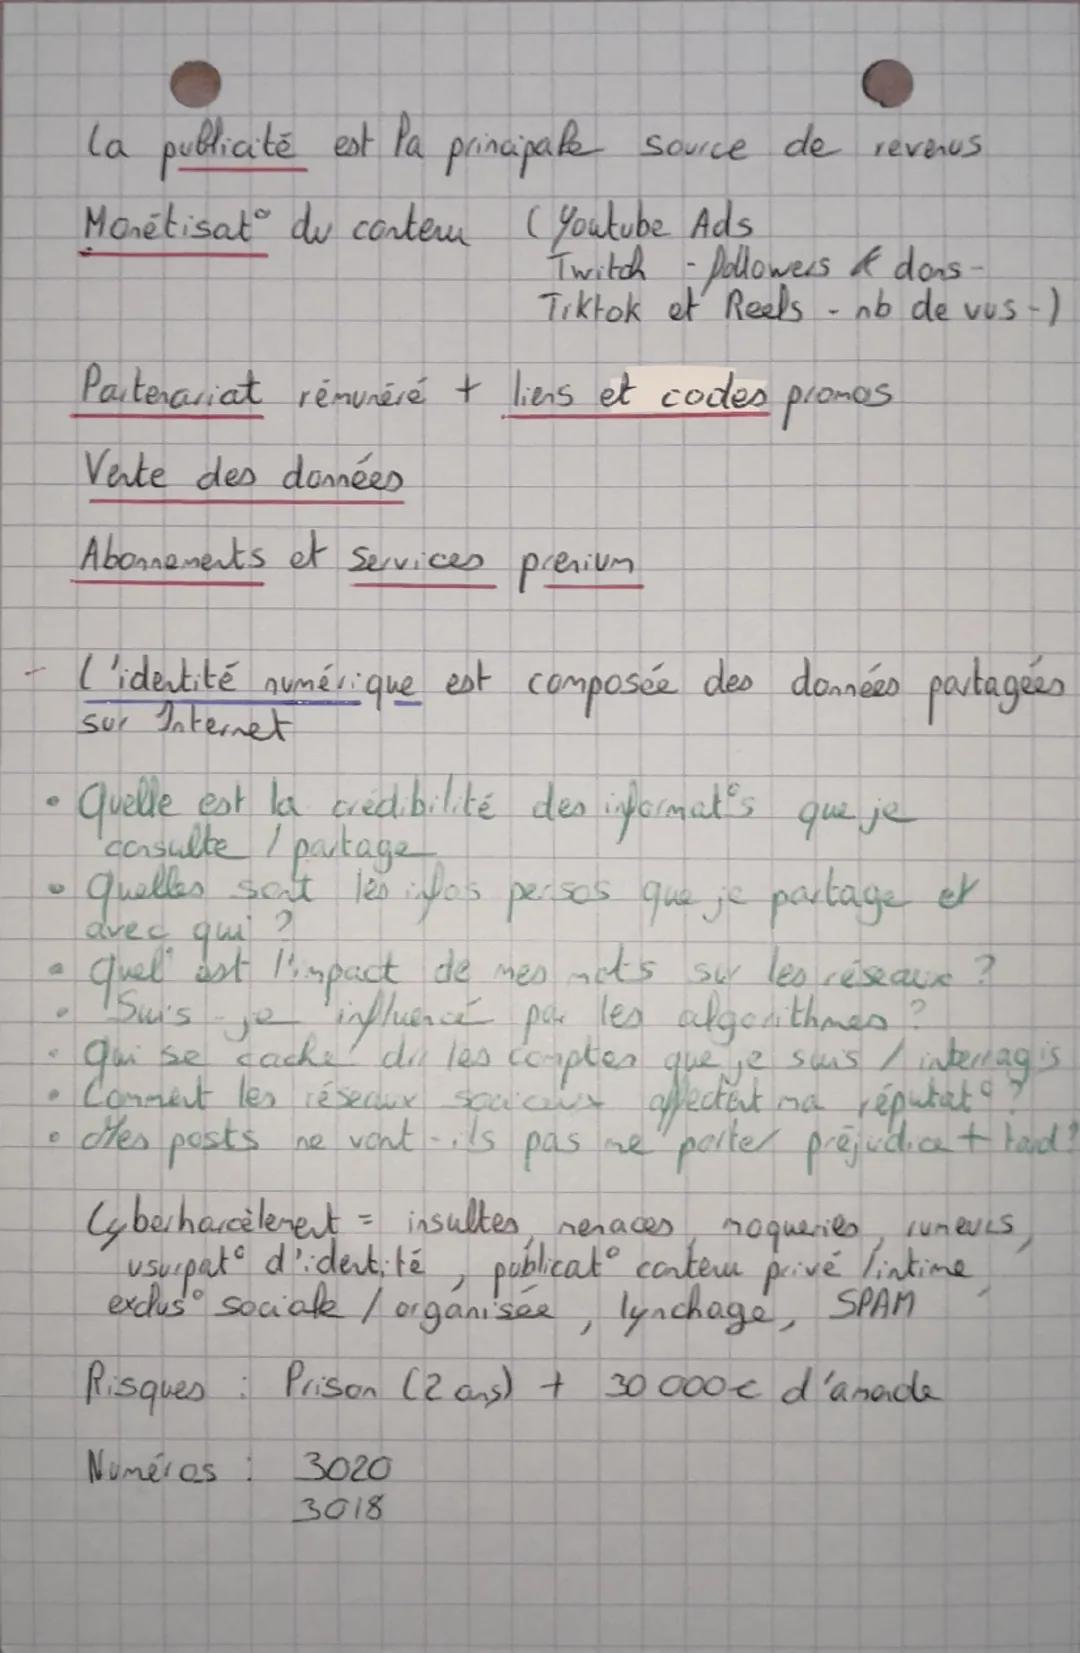 La publicité est la principale source de revenus
Monétisat° du contenu (Youtube Ads
Twitch - followers & dons -
Tiktok et Reels - nb de vus -)
Partenariat rémunéré + liens et codes promos
Vente des données
Abonnements et services prenium
- L'identité numérique est composée des données partagées
sur Internet
• Quelle est la crédibilité des informat°s que je
consulte / partage
• Quelles sont les infos persos que je partage et
avec qui ?
• Quel est l'impact de mes mots sur les réseaux ?
• Suis-je influencé par les algorithmes ?
• Qui se cache les comptes que je suis / interragis
• Comment les réseaux sociaux affectent ma réputat° ?
• Mes posts ne vont-ils pas me porter préjudice + tard ?
Cyberharcèlement = insultes, menaces, moqueries, rumeurs,
usurpat° d'identité, publicat° contenu privé / intime,
exclus° sociale / organisée, lynchage, SPAM
Risques : Prison (2 ans) + 30 000€ d'amade
Numéros : 3020
3018